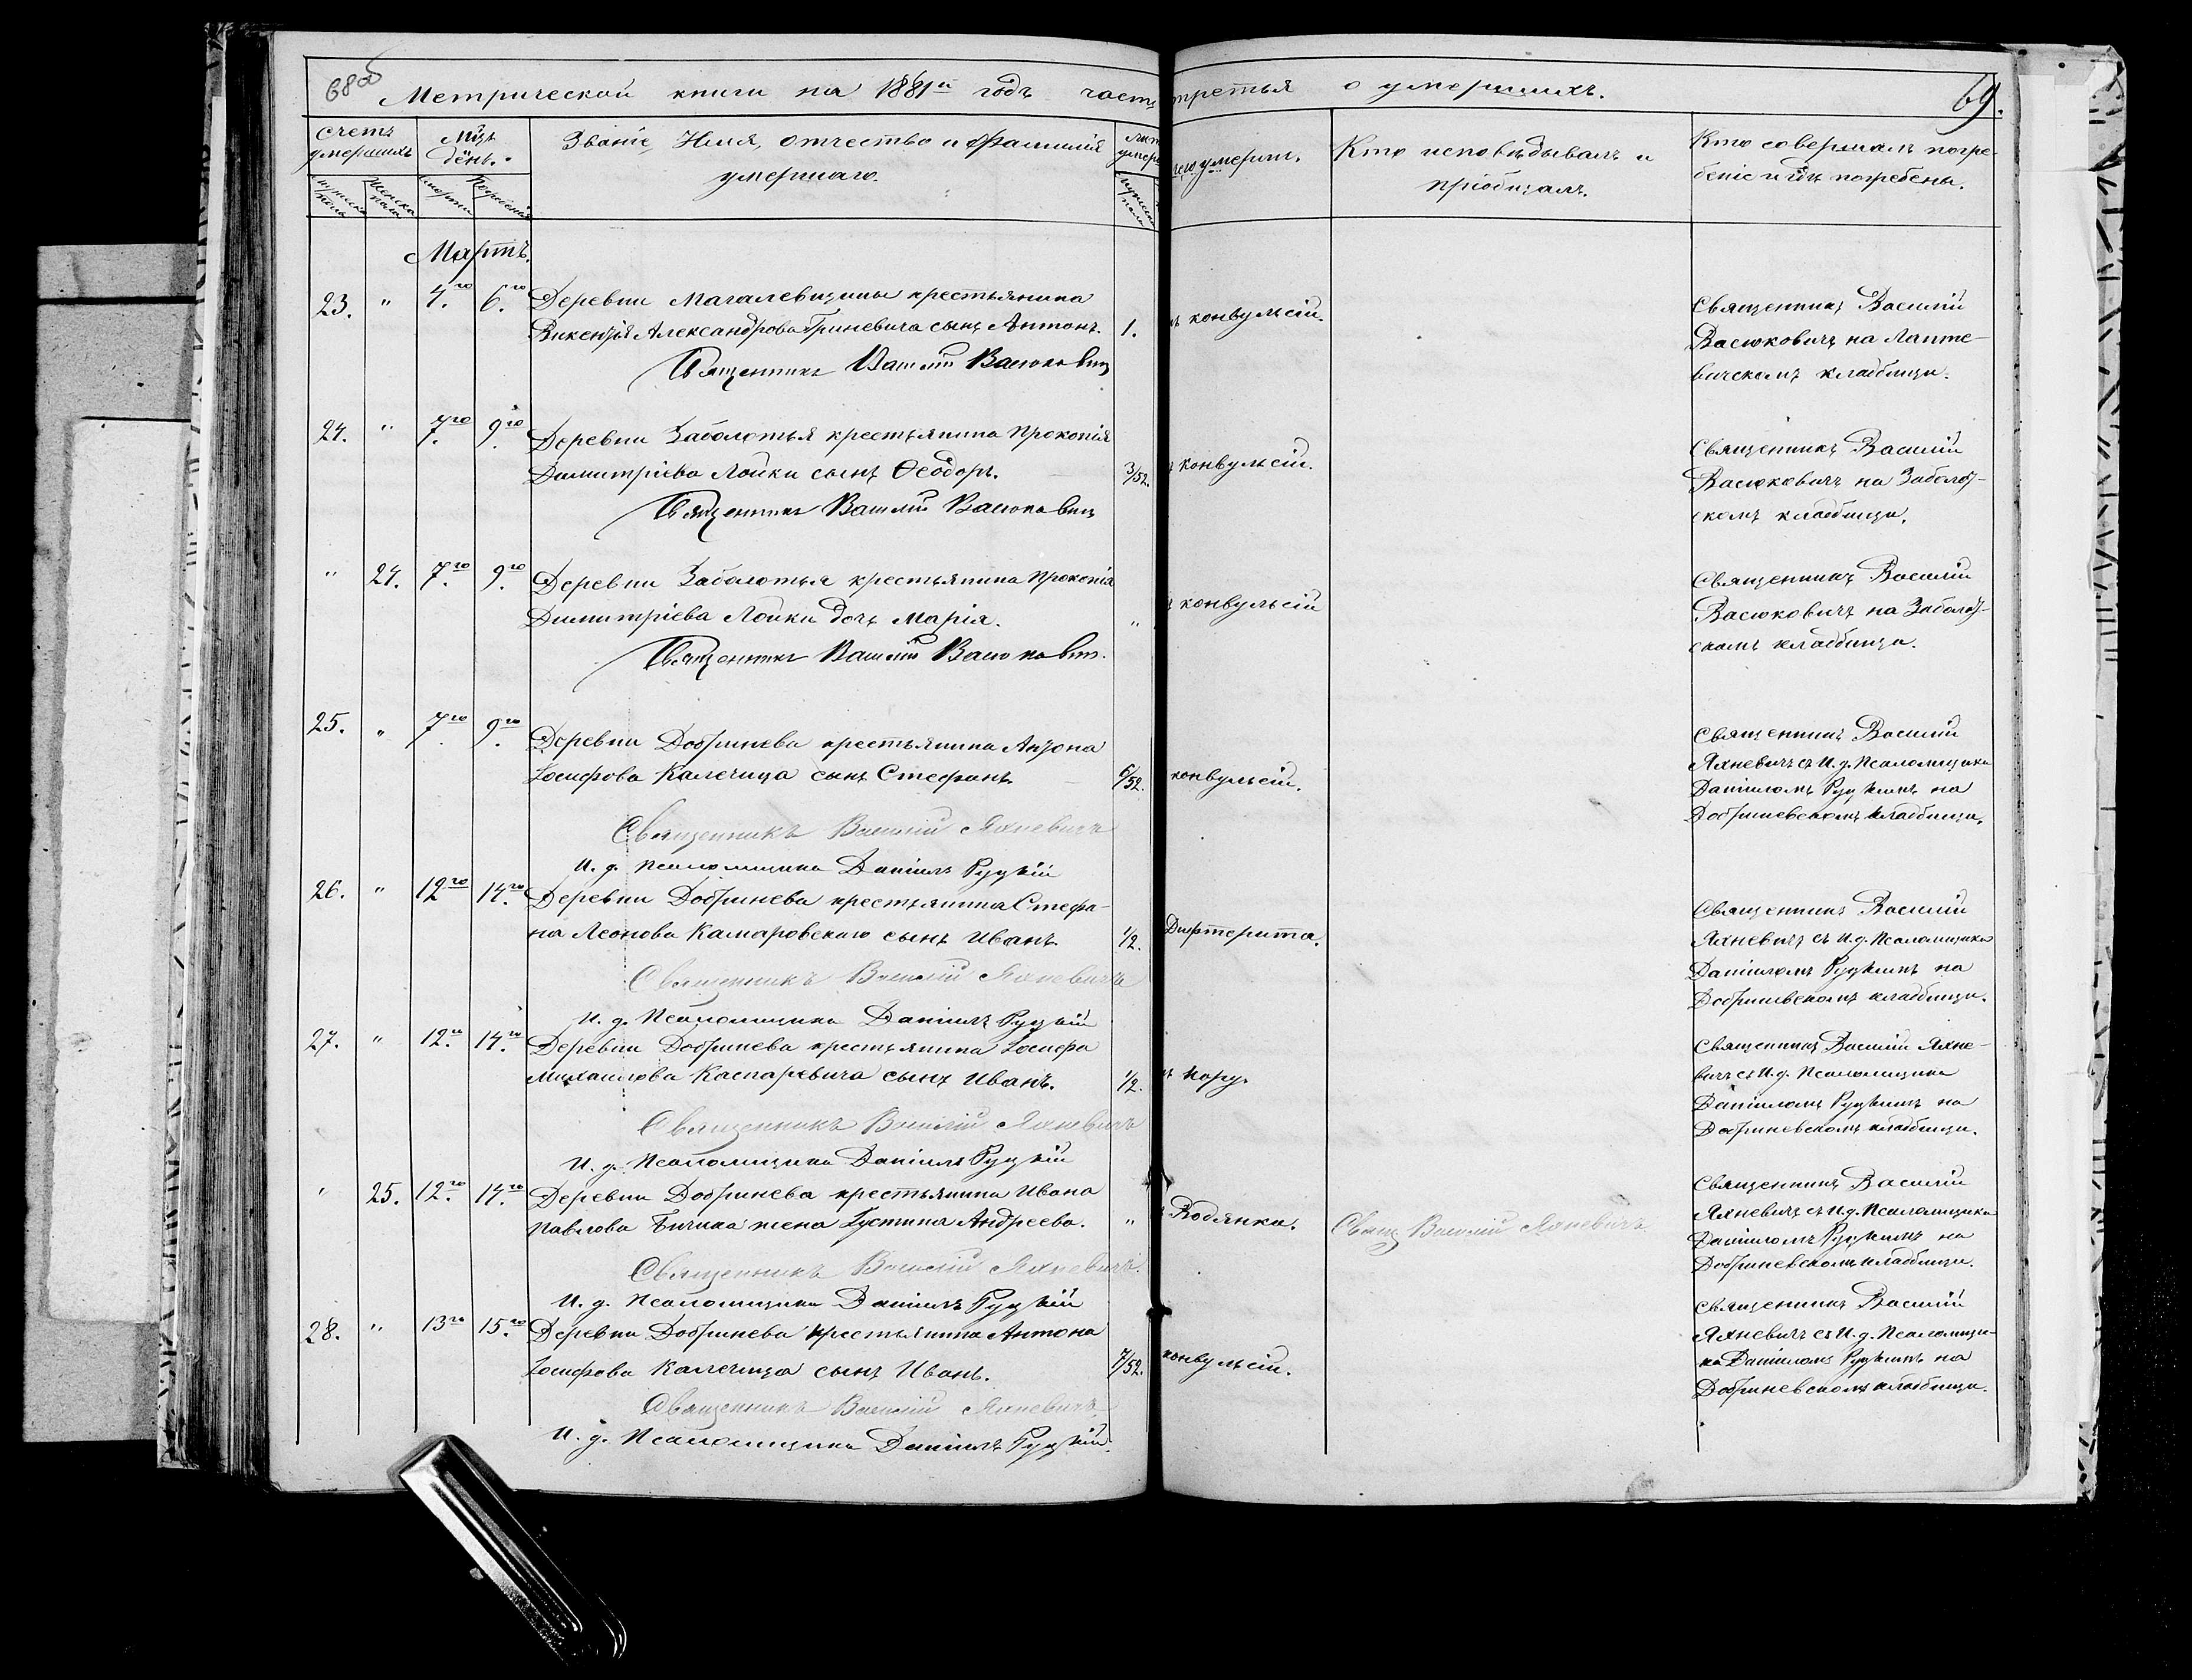 68об
Метрической книги на 1881й годъ часть третья о умершихъ.
69.
Счетъ умершихъ
Мцъ день.
Званіе, Имя, отчество и фамилія
умершаго.
Лѣт умер
чего умеръ.
Кто исповѣдывалъ и
пріобщалъ.
Кто совершалъ погре-
беніе и гдѣ погребены.
мужска пола
женска пола
смерти
погребенія
мужска пола
Мартъ.
23. " 4.го 6.го Деревни Магалевщины крестьянина
Викентія Александрова Гриневича сынъ Антонъ. 1. конвульсіи.
Священникъ Василій Васюковичъ
Священникъ Василій
Васюковичъ на Лапте-
вичскомъ кладбищи.
24. " 7.го 9.го Деревни Заболотья крестьянина Прокопія
Димитріева Лойки сынъ Ѳеодоръ. 3/52. конвульсіи.
Священникъ Василій Васюковичъ
Священникъ Василій
Васюковичъ на Заболот-
скомъ кладбищи.
" 24. 7.го 9.го Деревни Заболотья крестьянина Прокопія
Димитріева Лойки дочь Марія. " конвульсіи
Священникъ Василій Васюковичъ.
Священникъ Василій
Васюковичъ на Заболот-
скомъ кладбищи.
25. " 7.го 9.го Деревни Добринева крестьянина Антона
Іосифова Калечица сынъ Стефанъ. 6/52. конвульсіи.
Священникъ Василій Яхневичъ
И. д. Псаломщика Даніилъ Руцкій
Священникъ Василій
Яхневичъ съ И. д. Псаломщика
Даніиломъ Руцкимъ на
Добриневскомъ кладбищи.
26. " 12го 14.го Деревни Добринева крестьянина Стефа-
на Леонова Камаровскаго сынъ Иванъ. 1/2. Дифтерита.
Священникъ Василій Яхневичъ
И. д. Псаломщика Даніилъ Руцкій
Священникъ Василій
Яхневичъ съ И. д. Псаломщика
Даніиломъ Руцкимъ на
Добриневскомъ кладбищи.
27. " 12.го 14.го Деревни Добринева крестьянина Іосифа
Михаилова Каспаревича сынъ Иванъ. 1/2. Кору.
Священникъ Василій Яхневичъ
И. д. Псаломщика Даніилъ Руцкій
Священникъ Василій Яхне-
вичъ съ И. д. Псаломщика
Даніиломъ Руцкимъ на
Добриневскомъ кладбищи.
" 25. 12.го 14.го Деревни Добринева крестьянина Ивана
Павлова Бичика жена Іустина Андреева. " Водянки. Свящ Василій Яхневичъ
Священникъ Василій Яхневичъ.
И. д. Псаломщика Даніилъ Руцкій
Священникъ Василій
Яхневичъ съ И. д. Псаломщика
Даніиломъ Руцкимъ на
Добриневскомъ кладбищи.
28. " 13го 15.го Деревни Добринева крестьянина Антона
Іосифова Калечица сынъ Иванъ. 7/52. конвульсіи.
Священникъ Василій Яхневичъ
И. д. Псаломщика Даніилъ Руцкій.
Священникъ Василій
Яхневичъ съ И. д. Псаломщи-
ка Даніиломъ Руцкимъ на
Добриневскомъ кладбищи.